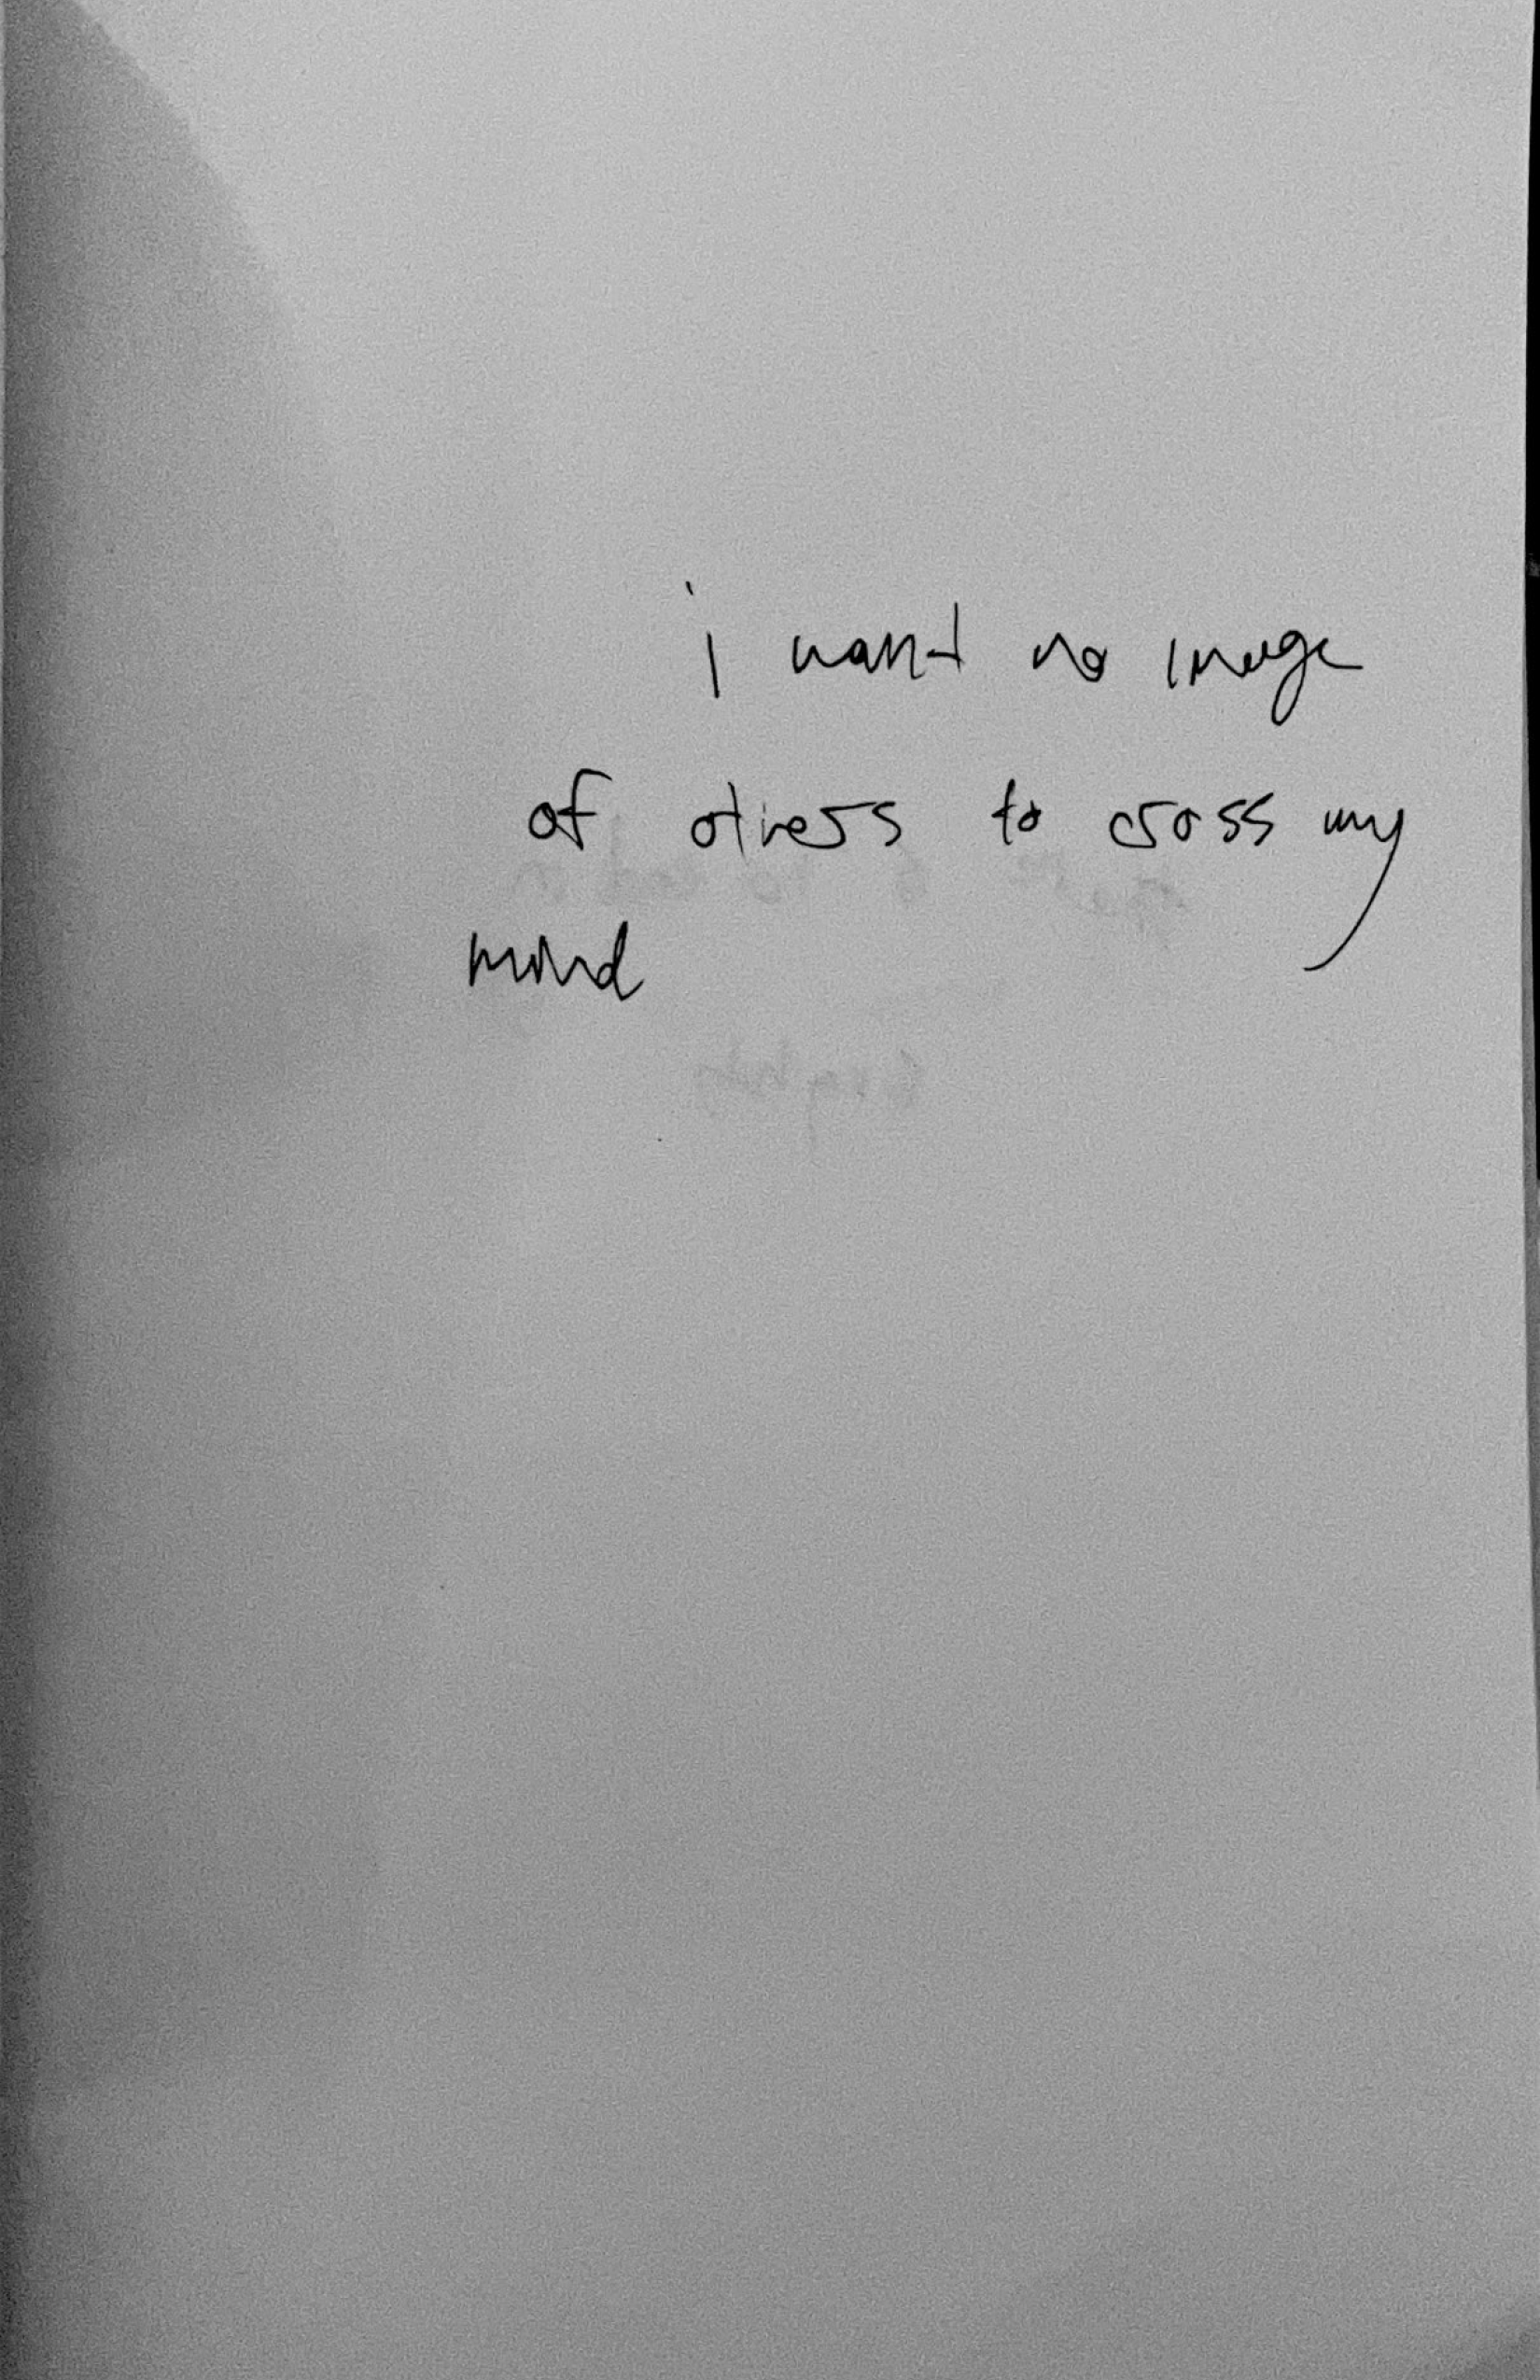 i want no image
of others to cross my
mind